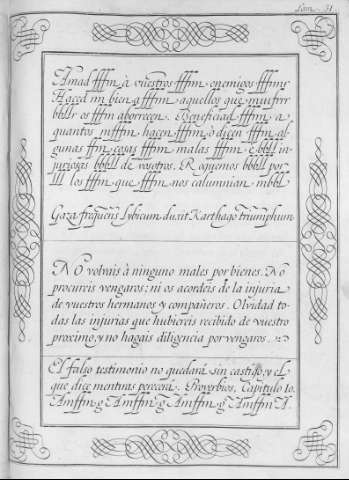 Lam. 31.
Amad fffm à vuestros fffm enemigos fffms
Haced mi bien a fffm aquellos que
os fffm aborrecen. Beneficiad fffm a
quantos mffm hacen fffm ò dicen fffm al-
gunas ffm cosas fffm malas fffm è bbll in-
juriosas bbbll de vosotros. Roguemos bbbll por
lll los fffm que fffm nos calumnian mbbl
Gaza frequẽns Lybicum duxit Karthago triumphum
NO volvais à ninguno males por bienes. No
procureis vengaros: ni os acordeis de la injuria
de vuestros hermanos y compañeros. Olvidad to-
das las injurias que hubiereis recibido de vuestro
proximo, y no hagais diligencia por vengaros.
El falso testimonio no quedará sin castigo, y el
que dice mentiras perecerá. Proverbios, Capitulo 10.
Amffm g Amffm g Amffm g AmffmA.